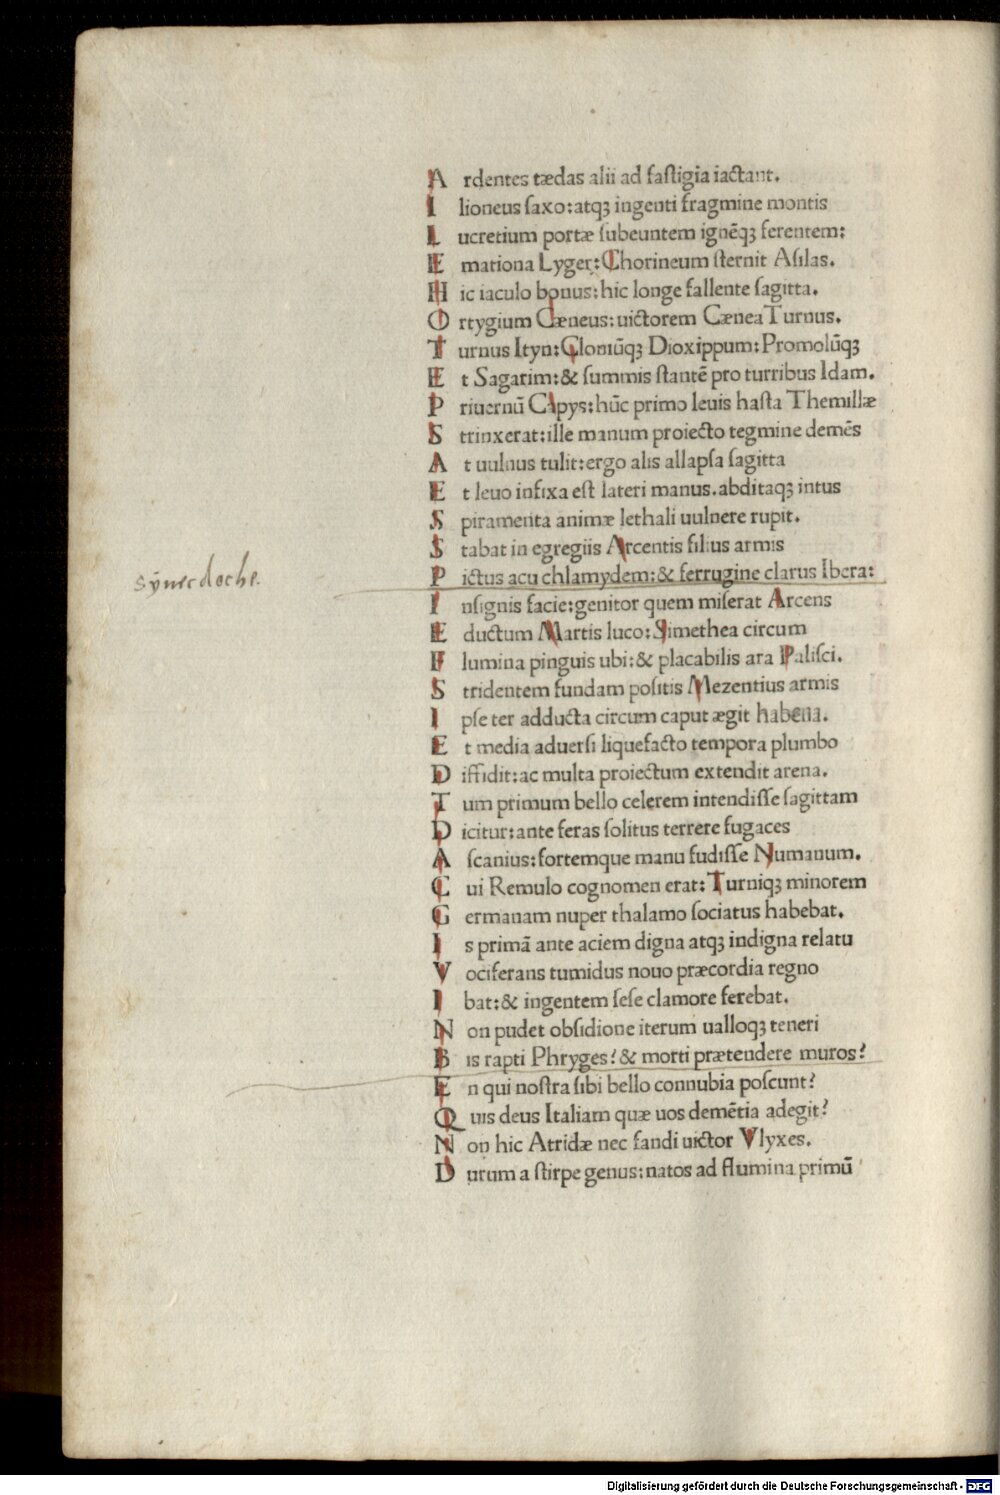 Ardentes tædas alii ad faſtigia iactant.
Ilioneus ſaxo: atqꝫ ingenti fragmine montis
Lucretium portæ ſubeuntem ignēqꝫ ferentem:
Emationa Lyger: Chorineum ſternit Aſilas.
Hic iaculo bonus: hic longe fallente ſagitta.
Ortygium Cæneus: uictorem Cænea Turnus.
Turnus Ityn: Cloniūqꝫ Dioxippum: Promolūqꝫ
Et Sagarim: & ſummis ſtantē pro turribus Idam.
Priuernū Capys: hūc primo leuis haſta Themillæ
Strinxerat: ille manum proiecto tegmine demēs
At uulnus tulit: ergo alis allapſa ſagitta
Et leuo infixa eſt lateri manus. abditaqꝫ intus
Spiramenta animæ lethali uulnere rupit.
Stabat in egregiis Arcentis filius armis
synecdoche.
Pictus acu chlamydem: & ferrugine clarus Ibera:
Inſignis facie: genitor quem miſerat Arcens
Eductum Martis luco: Simethea circum
Flumina pinguis ubi: & placabilis ara Paliſci.
Stridentem fundam poſitis Mezentius armis
Ipſe ter adducta circum caput ægit habena.
Et media aduerſi liquefacto tempora plumbo
Diffidit: ac multa proiectum extendit arena.
Tum primum bello celerem intendiſſe ſagittam
Dicitur: ante feras ſolitus terrere fugaces
Aſcanius: fortemque manu fudiſſe Numanum.
Cui Remulo cognomen erat: Turniqꝫ minorem
Germanam nuper thalamo ſociatus habebat.
Is primā ante aciem digna atqꝫ indigna relatu
Vociferans tumidus nouo præcordia regno
Ibat: & ingentem ſeſe clamore ferebat.
Non pudet obſidione iterum ualloqꝫ teneri
Bis rapti Phryges? & morti prætendere muros?
En qui noſtra ſibi bello connubia poſcunt?
Quis deus Italiam quæ uos demētia adegit?
Non hic Atridæ nec fandi uictor Vlyxes.
Durum a ſtirpe genus: natos ad flumina primū
Digitalisierung gefördert durch die Deutsche Forschungsgemeinschaft - DFG